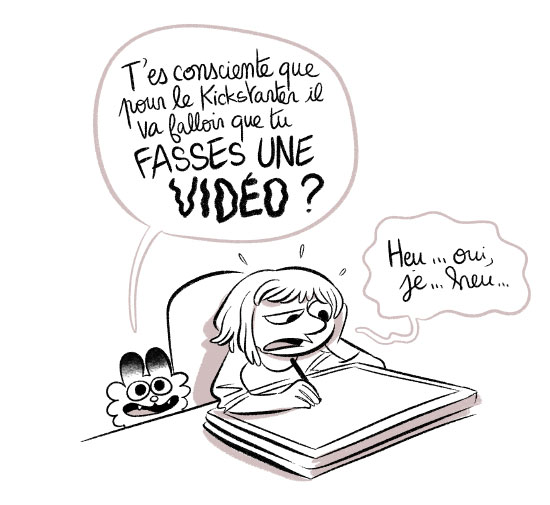 T'es consciente que
pour le Kickstarter il
va falloir que tu
FASSES UNE
VIDÉO ?
Heu... oui,
je... heu...